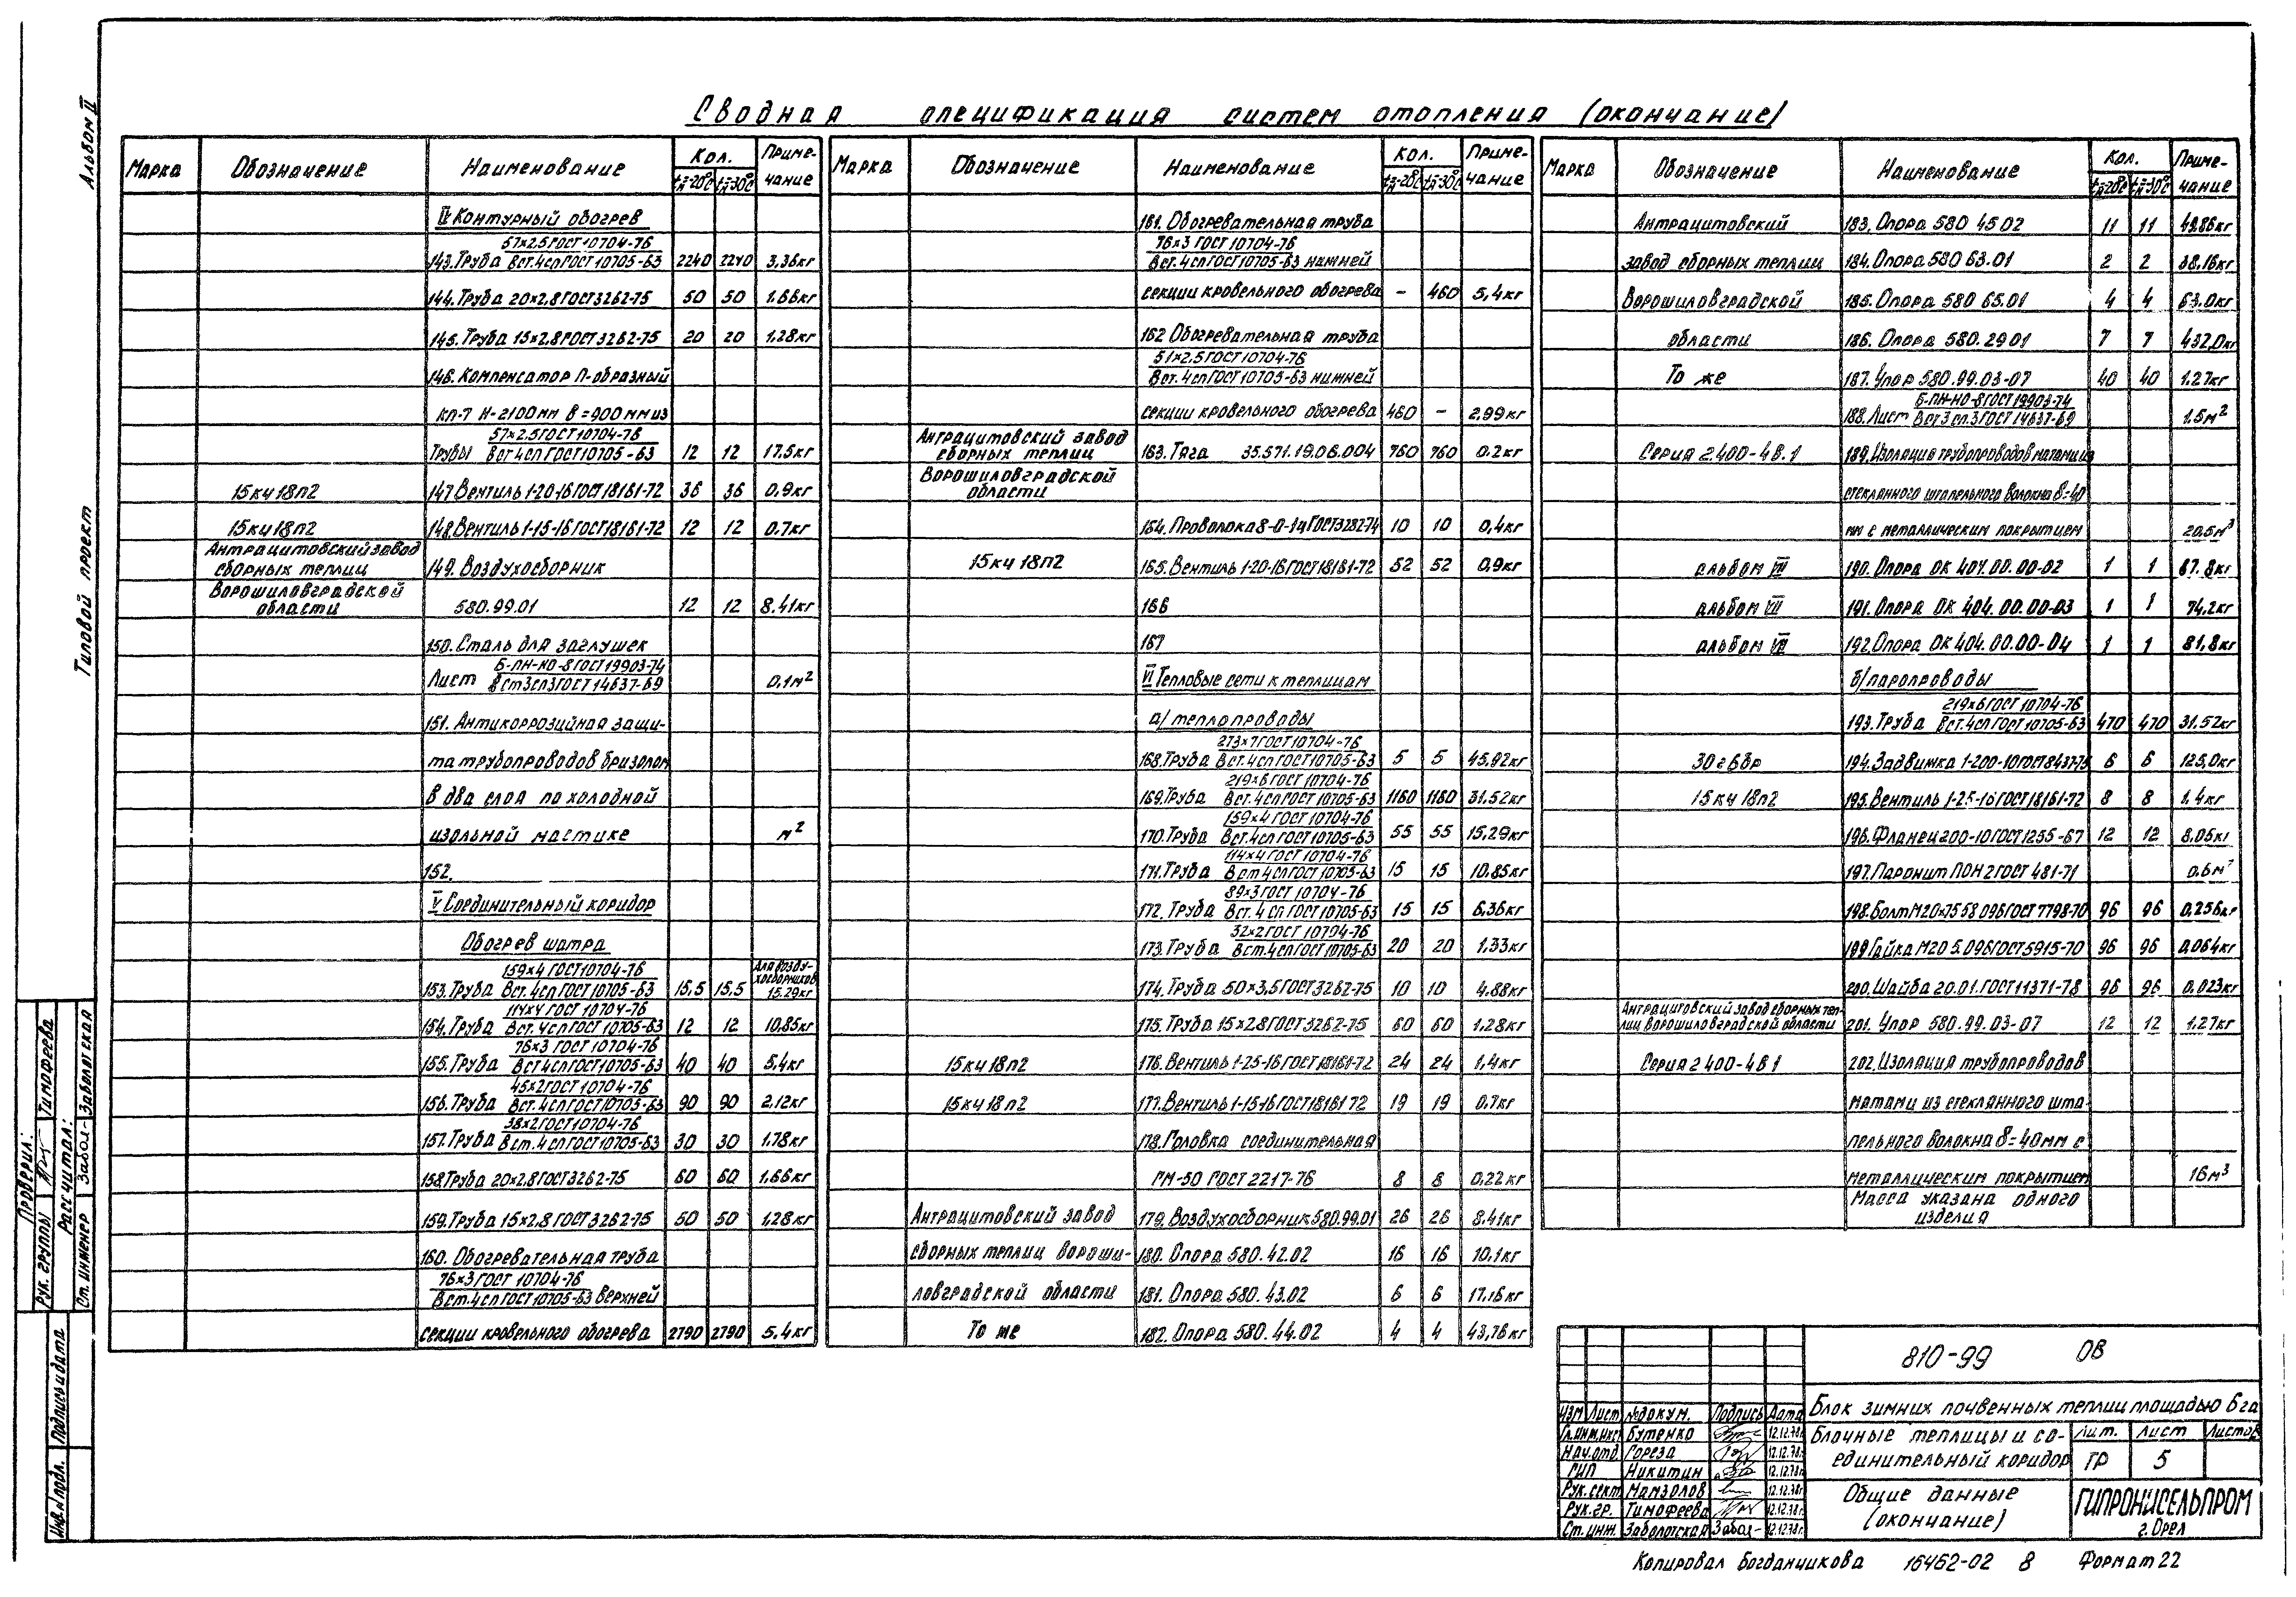 Сводная спецификация систем отопления (окончание)
Альбом II
Типовой проект
Марка Обозначение Наименование Кол. Приме-
tн=-20°С tн=-30°С чание
IV Контурный обогрев
57×2.5 ГОСТ 10704-76
143. Труба Вст.4сп ГОСТ 10705-63 2240 2240 3,36кг
144. Труба 20×2,8 ГОСТ 3262-75 50 50 1.66кг
145. Труба 15×2,8 ГОСТ 3262-75 20 20 1,28кг
146. Компенсатор П-образный
КП-7 Н-2100мм В=900мм из
57×2.5 ГОСТ 10704-76
Трубы Вст 4сп ГОСТ 10705-63 12 12 17.5кг
15кч18п2 147. Вентиль 1-20-16 ГОСТ 18161-72 36 36 0,9кг
15кч18п2 148. Вентиль 1-15-16 ГОСТ 18161-72 12 12 0.7кг
Антрацитовский завод
сборных теплиц 149. Воздухосборник
Ворошиловградской
области 580.99.01 12 12 8.41кг
150. Сталь для заглушек
Б-ПН-НО-8 ГОСТ 19903-74
Лист Вст3сп3 ГОСТ 14637-69 0,1м²
151. Антикоррозийная защи-
та трубопроводов бризолом
в два слоя по холодной
изольной мастике м²
152.
V Соединительный коридор
Обогрев шатра
159×4 ГОСТ 10704-76 Для возду-
хосборников
153. Труба Вст.4сп ГОСТ 10705-63 15,5 15,5 15.29кг
114×4 ГОСТ 10704-76
154. Труба Вст.4сп ГОСТ 10705-63 12 12 10,85кг
76×3 ГОСТ 10704-76
155. Труба Вст 4сп ГОСТ 10705-63 40 40 5,4кг
45×2 ГОСТ 10704-76
156. Труба Вст.4сп ГОСТ 10705-63 90 90 2.12кг
38×2 ГОСТ 10704-76
157. Труба Вст.4сп ГОСТ 10705-63 30 30 1.78кг
158. Труба 20×2.8 ГОСТ 3262-75 60 60 1,66кг
159. Труба 15×2,8 ГОСТ 3262-75 50 50 1,28кг
160. Обогревательная труба
76×3 ГОСТ 10704-76
Вст.4сп ГОСТ 10705-63 верхней
секции кровельного обогрева 2790 2790 5.4кг
Марка Обозначение Наименование Кол. Приме-
tн=-20°С tн=-30°С чание
161. Обогревательная труба
76×3 ГОСТ 10704-76
Вст.4сп ГОСТ 10705-63 нижней
секции кровельного обогрева - 460 5,4кг
162 Обогревательная труба
51×2.5 ГОСТ 10704-76
Вст.4сп ГОСТ 10705-63 нижней
секции кровельного обогрева 460 - 2.99кг
Антрацитовский завод
сборных теплиц 163. Тяга 35.571.19.06.004 760 760 0.2кг
Ворошиловградской
области
164. Проволока 8-0-1ц ГОСТ 3282-74 10 10 0,4кг
15кч18п2 165. Вентиль 1-20-16 ГОСТ 18161-72 52 52 0,9кг
166
167
VI Тепловые сети к теплицам
а/ теплопроводы
273×7 ГОСТ 10704-76
168. Труба Вст.4сп ГОСТ 10705-63 5 5 45.92кг
219×6 ГОСТ 10704-76
169. Труба Вст.4сп ГОСТ 10705-63 1160 1160 31.52кг
159×4 ГОСТ 10704-76
170. Труба Вст.4сп ГОСТ 10705-63 55 55 15,29кг
114×4 ГОСТ 10704-76
171. Труба Вст 4сп ГОСТ 10705-63 15 15 10.85кг
89×3 ГОСТ 10704-76
172. Труба Вст. 4 сп ГОСТ 10705-63 15 15 6,36кг
32×2 ГОСТ 10704-76
173. Труба Вст.4сп ГОСТ 10705-63 20 20 1,33кг
174. Труба 50×3,5 ГОСТ 3262-75 10 10 4.88кг
175. Труба 15×2.8 ГОСТ 3262-75 60 60 1,28кг
15кч18п2 176. Вентиль 1-25-16 ГОСТ 18161-72 24 24 1,4кг
15кч18п2 177. Вентиль 1-15-16 ГОСТ 18161 72 19 19 0.7кг
178. Головка соединительная
ГМ-50 ГОСТ 2217-76 8 8 0,22кг
Антрацитовский завод 179. Воздухосборник 580.99.01 26 26 8.41кг
сборных теплиц Вороши- 180. Опора 580.42.02 16 16 10,1кг
ловградской области 181. Опора 580.43.02 6 6 17,16кг
То же 182. Опора 580.44.02 4 4 43,76кг
Марка Обозначение Наименование Кол. Приме-
tн=-20°С tн=-30°С чание
Антрацитовский 183. Опора 580 45 02 11 11 49.86кг
завод сборных теплиц 184. Опора 580 63.01 2 2 38.16кг
Ворошиловградской 185. Опора 580 65.01 4 4 63.0кг
области 186. Опора 580.29 01 7 7 432,0кг
То же 187. Упор 580.99.03-07 40 40 1.27кг
Б-ПН-НО-8 ГОСТ 19903-74
188. Лист Вст3сп.3 ГОСТ 14637-69 1.5м²
Серия 2.400-4 В.1 189. Изоляция трубопроводов матами из
стеклянного штапельного волокна δ=40
мм с металлическим покрытием 20,5м³
альбом VII 190. Опора ОК 404.00.00-02 1 1 67.8кг
альбом VII 191. Опора ОК 404.00.00-03 1 1 74,2кг
альбом VII 192. Опора ОК 404.00.00-04 1 1 81,8кг
б/ паропроводы
219×6 ГОСТ 10704-76
193. Труба Вст.4сп ГОСТ 10705-63 470 470 31.52кг
30ч6бр 194. Задвижка 1-200-10 ГОСТ 8437-75 6 6 125,0кг
15кч18п2 195. Вентиль 1-25-16 ГОСТ 18161-72 8 8 1.4кг
196. Фланец 200-10 ГОСТ 1255-67 12 12 8.05кг
197. Паронит ПОН 2 ГОСТ 481-71 0,6м²
198. Болт М20×75 58 096 ГОСТ 7798-70 96 96 0,256кг
199 Гайка М20 5.096 ГОСТ 5915-70 96 96 0.064кг
200. Шайба 20.01. ГОСТ 11371-78 96 96 0.023кг
Антрацитовский завод сборных теп-
лиц Ворошиловградской области 201. Упор 580.99.03-07 12 12 1.27кг
Серия 2 400-4 В 1 202. Изоляция трубопроводов
матами из стеклянного шта-
пельного волокна δ=40мм с
металлическим покрытием 16м³
Масса указана одного
изделия
Проверил:
Рук. группы Тимофеева
Рассчитал:
Ст. инженер Забол- Заболотская
Подпись и дата
Инв.№ подл.
810-99 ОВ
Блок зимних почвенных теплиц площадью 6га
Изм Лист №докум. Подпись Дата
Гл.инж.инст Бутенко 12.12.78г
Нач.отд. Гореза 12.12.78г
ГИП Никитин 12.12.78г
Рук.сект Мамзолов 12.12.78г
Рук.гр. Тимофеева 12.12.78г
Ст.инж. Заболотская Забол- 12.12.78г
Блочные теплицы и со-
единительный коридор
Лит. Лист Листов
ТР 5
Общие данные
(окончание)
ГИПРОНИСЕЛЬПРОМ
г.Орел
Копировал Богданчикова 16462-02 8 Формат 22